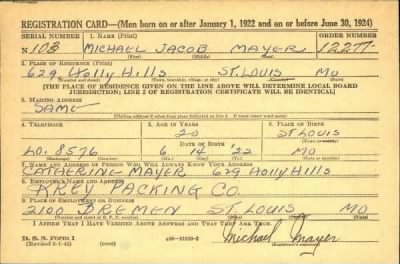 REGISTRATION CARD—(Men born on or after January 1, 1922 and on or before June 30, 1924)
SERIAL NUMBER 1. NAME (Print) ORDER NUMBER
N 103 MICHAEL JACOB MAYER 12277
(First) (Middle) (Last)
2. PLACE OF RESIDENCE (Print)
629 Holly Hills ST. LOUIS MO
(Number and street) (Town, township, village, or city) (County) (State)
[THE PLACE OF RESIDENCE GIVEN ON THE LINE ABOVE WILL DETERMINE LOCAL BOARD
JURISDICTION; LINE 2 OF REGISTRATION CERTIFICATE WILL BE IDENTICAL]
3. MAILING ADDRESS
SAME
(Mailing address if other than place indicated on line 2. If same insert word same)
4. TELEPHONE 5. AGE IN YEARS 6. PLACE OF BIRTH
20 ST LOUIS
DATE OF BIRTH (Town or county)
LO. 8576 6 14 '22 MO
(Exchange) (Number) (Mo.) (Day) (Yr.) (State or country)
7. NAME AND ADDRESS OF PERSON WHO WILL ALWAYS KNOW YOUR ADDRESS
CATHERINE MAYER 629 Holly Hills
8. EMPLOYER'S NAME AND ADDRESS
KREY PACKING CO.
9. PLACE OF EMPLOYMENT OR BUSINESS
2100 BREMEN ST LOUIS MO
(Number and street or R. F. D. number) (Town) (County) (State)
I AFFIRM THAT I HAVE VERIFIED ABOVE ANSWERS AND THAT THEY ARE TRUE.
D. S. S. Form 1
(Revised 6-1-42) Michael Mayer